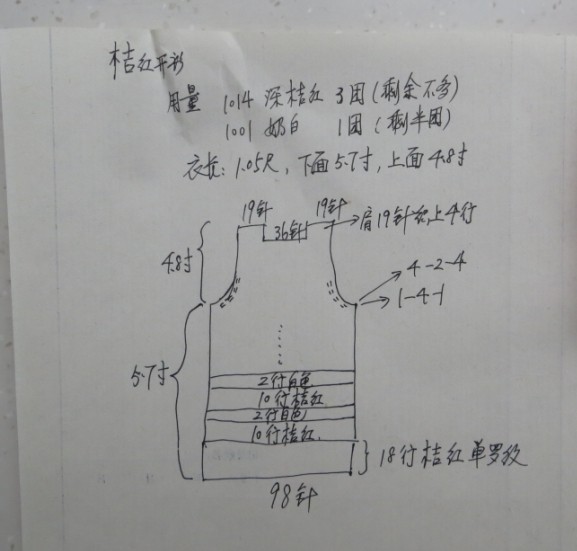 桔红开衫
用量 1014 深桔红 3团(剩余不多)
1001 奶白 1团(剩半团)
衣长:1.05尺,下面5.7寸,上面4.8寸
19针
19针
36针
肩19针织上4行
4.8寸
4-2-4
1-4-1
5.7寸
2行白色
10行桔红
2行白色
10行桔红
18行桔红单罗纹
98针